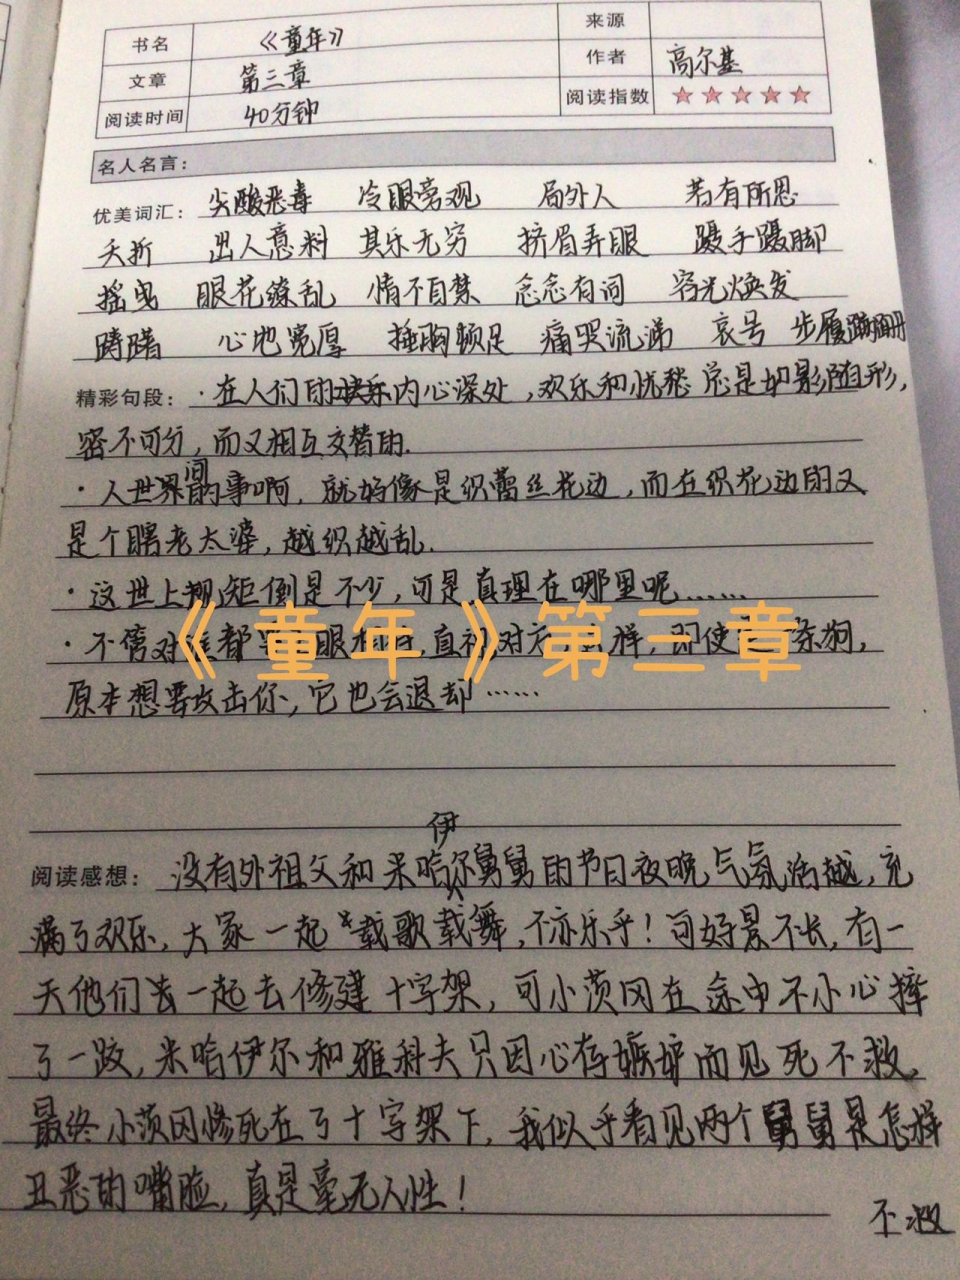 书名 《童年》 来源
文章 第三章 作者 高尔基
阅读时间 40分钟 阅读指数 ★★★★★
名人名言：
优美词汇： 尖酸恶毒 冷眼旁观 局外人 若有所思
夭折 出人意料 其乐无穷 挤眉弄眼 蹑手蹑脚
摇曳 眼花缭乱 情不自禁 念念有词 容光焕发
踌躇 心地宽厚 捶胸顿足 痛哭流涕 哀号 步履蹒跚
精彩句段： ·在人们的内心深处，欢乐和忧愁总是如影随形，
密不可分，而又相互交替的.
·人世间的事啊，就好像是织蕾丝花边，而在织花边的又
是个瞎老太婆，越织越乱.
·这世上规矩倒是不少，可是真理在哪里呢……
《童年》第三章
·不管对谁都要 眼 ，直视对方， 样，即使 条狗，
原本想要攻击你，它也会退却……
阅读感想： 没有外祖父和米哈伊尔舅舅的节日夜晚气氛活越，充
满了欢乐，大家一起载歌载舞，不亦乐乎！可好景不长，有一
天他们去一起去修建十字架，可小茨冈在途中不小心摔
了一跤，米哈伊尔和雅科夫只因心存嫉妒而见死不救。
最终小茨冈惨死在了十字架下，我似乎看见两个舅舅是怎样
丑恶的嘴脸，真是毫无人性！
不救